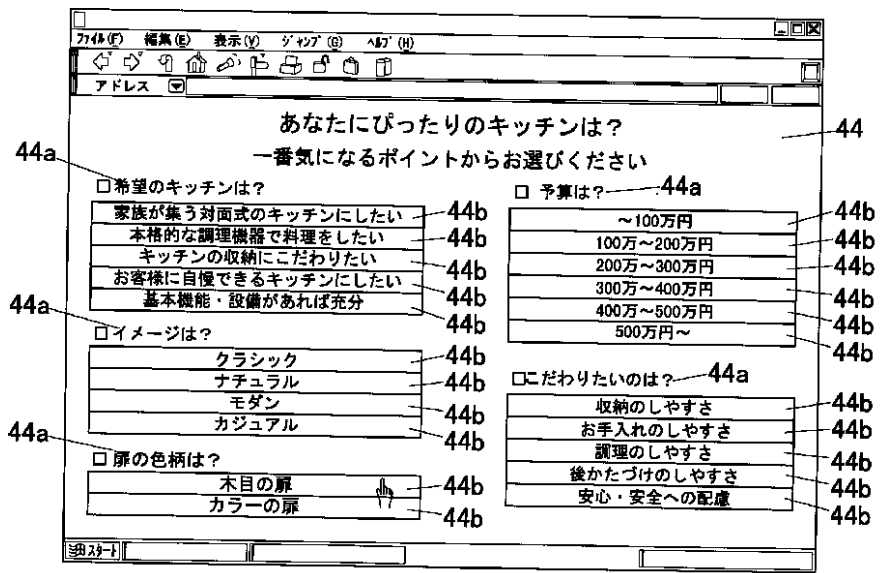 ファイル(F) 編集(E) 表示(V) ジャンプ(G) ヘルプ(H)
アドレス
あなたにぴったりのキッチンは？
一番気になるポイントからお選びください
44
44a
□希望のキッチンは？
家族が集う対面式のキッチンにしたい 44b
本格的な調理機器で料理をしたい 44b
キッチンの収納にこだわりたい 44b
お客様に自慢できるキッチンにしたい 44b
基本機能・設備があれば充分 44b
44a
□イメージは？
クラシック 44b
ナチュラル 44b
モダン 44b
カジュアル 44b
44a
□扉の色柄は？
木目の扉 44b
カラーの扉 44b
□予算は？ 44a
～100万円 44b
100万～200万円 44b
200万～300万円 44b
300万～400万円 44b
400万～500万円 44b
500万円～ 44b
□こだわりたいのは？ 44a
収納のしやすさ 44b
お手入れのしやすさ 44b
調理のしやすさ 44b
後かたづけのしやすさ 44b
安心・安全への配慮 44b
スタート